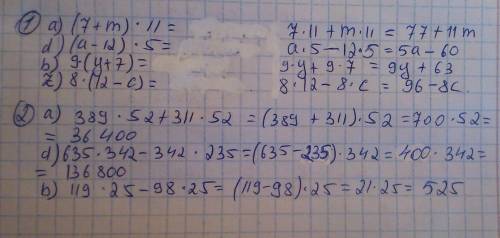 ① a) (7+m)·11 = 7·11+m·11 = 77+11m
d) (a-12)·5 = a·5-12·5 = 5a-60
b) 9·(y+7) = 9·y+9·7 = 9y+63
z) 8·(12-c) = 8·12-8·c = 96-8c
② a) 389·52+311·52 = (389+311)·52 = 700·52 =
= 36 400
d) 635·342-342·235 = (635-235)·342 = 400·342 =
= 136 800
b) 119·25-98·25 = (119-98)·25 = 21·25 = 525